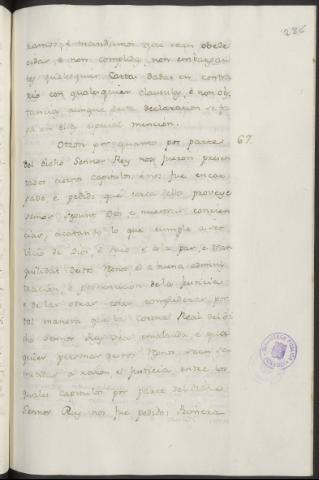 226
ramos, é mandamos que sean obede
cidas, é non complidas, non embargan
tes qualesquier Cartas dadas en contra
rio con qualesquier clausulas, é non obs
tancias aunque desta declaracion se fa
ga en ella special mencion.
Otrosi por quanto por parte 67.
del dicho Sennor Rey nos fueron presen
tados ciertos capitulos, é nos fue encar
gado, é pedido que cerca dello proveye
semos segunt Dios, é nuestras concien
cias, acatando lo que cumple a ser
vicio de Dios, é suyo, é a la paz, é tran
quilidat destos Regnos, é a buena adminis
tracion, é de la Justicia
é de las otras cosas complideras, por
tal manera que la Corona Real del di
cho Sennor Rey sea ensalzada, é quales
quier personas destos Regnos sean re
medias a razon, é Justicia, entre los
quales capitulos por parte del dicho
Sennor Rey nos fue pedido;